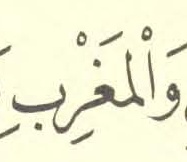 وَالْمَغْرِبِ